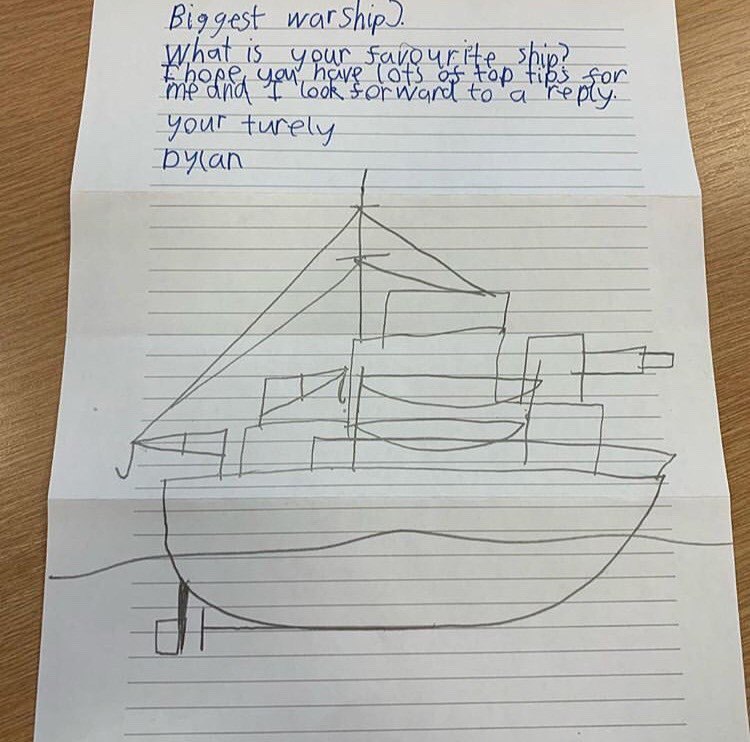 Biggest warship?.
What is your favourite ship?
I hope you have lots of top tips for
me and I look forward to a reply.
your turely
Dylan